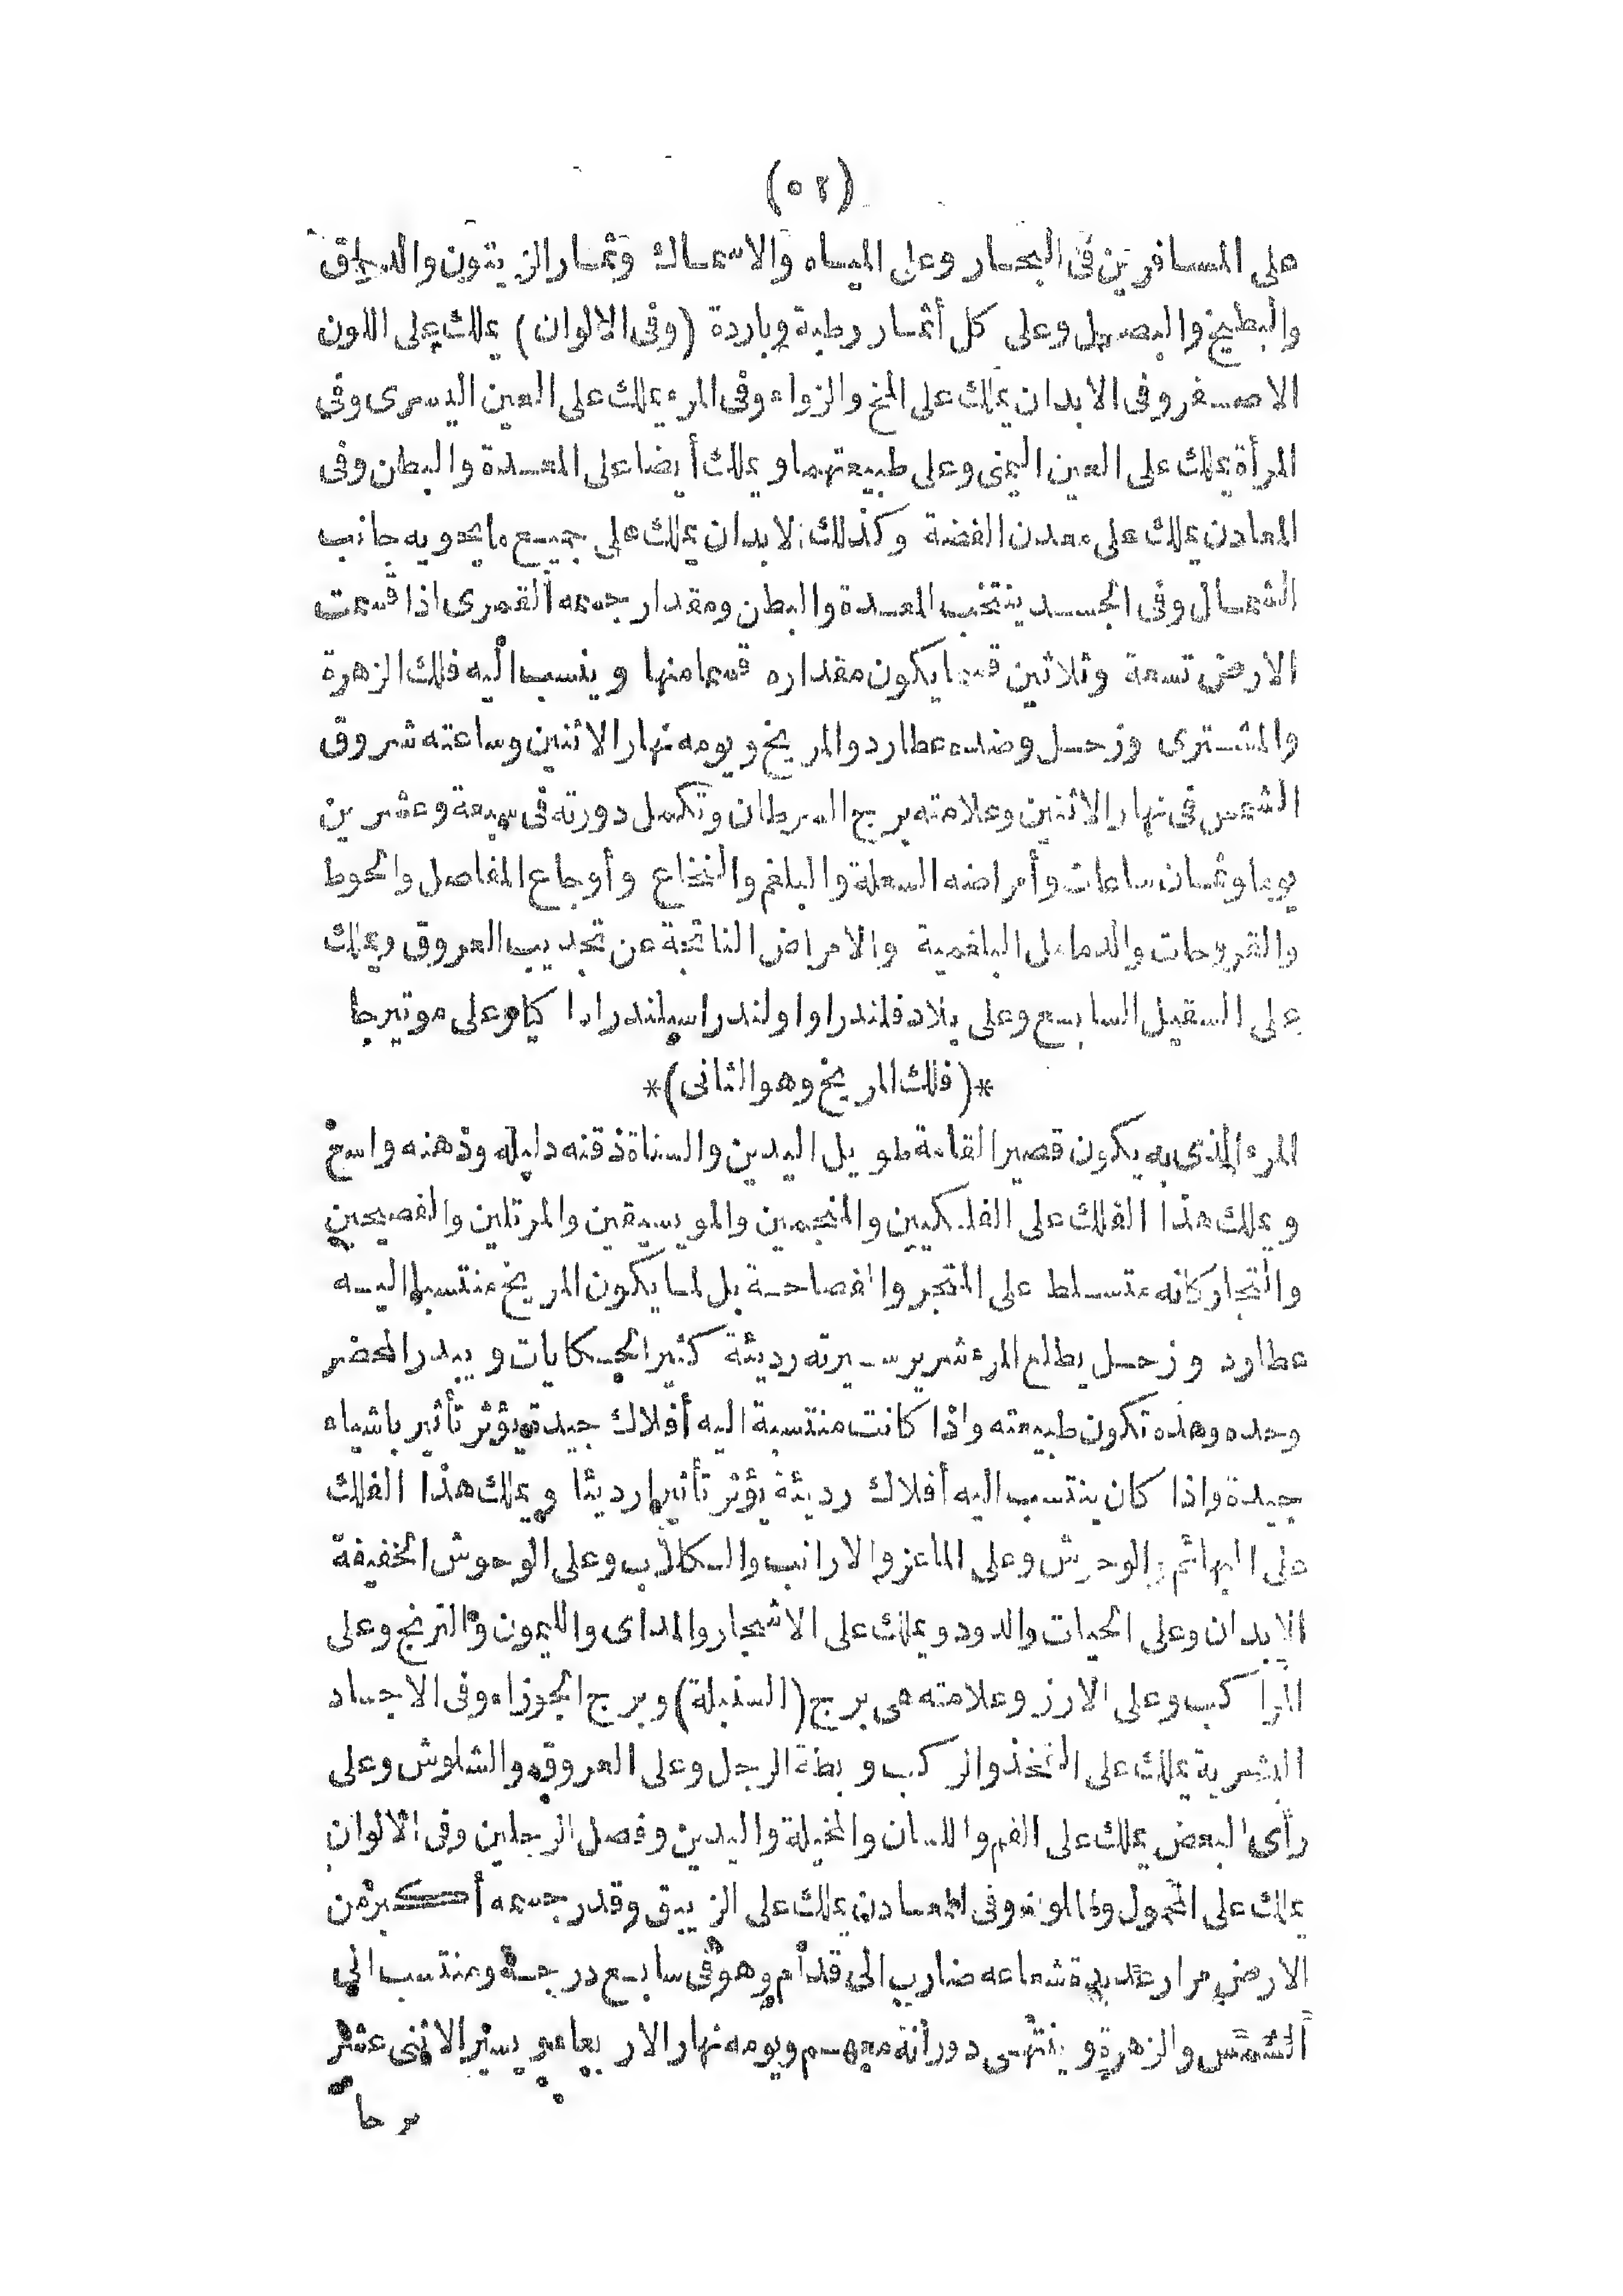 (٥٢)
على المسافرين فى البحار وعلى المياه والاسماك وثمار الزيتون والسماق
والبطيخ والبصل وعلى كل أثمار رطبة وباردة (وفى الالوان) يملك على اللون
الاصفر وفى الابدان يملك على المخ والزواء وفى المرء يملك على العين اليسرى وفى
المرأة يملك على العين اليمنى وعلى طبيعتهما ويملك أيضا على المعدة والبطن وفى
المعادن يملك على معدن الفضة وكذلك الابدان يملك على جميع ما يحويه جانب
الشمال وفى الجسد ينتخب المعدة والبطن ومقدار جسمه القمرى اذا قسمت
الارض تسعة وثلاثين قسما يكون مقداره قسما منها وينسب اليه فلك الزهرة
والمشترى وزحل وضده عطارد والمريخ ويومه نهار الاثنين وساعته شروق
الشمس فى نهار الاثنين وعلامته برج السرطان وتكمل دورته فى سبعة وعشرين
يوما وثمان ساعات وأمراضه السعلة والبلغم والنخاع وأوجاع المفاصل والحوط
والقروحات والدمامل البلغمية والامراض الناتجة عن تجديب العروق ويملك
على السقيل السابع وعلى بلاد فلندرا واولندرا سيلندرادا كيا وعلى موتيرجا
*(فلك المريخ وهو الثانى)*
المرء الذى به يكون قصير القامة طويل اليدين والسناة ذقنه دليله وذهنه واسع
ويملك هذا الفلك على الفلكيين والمنجمين والمويسيقين والمرتلين والفصيحين
والتجار كانه متسلط على المتجر والفصاحة بل لما يكون المريخ منتسبا اليه
عطاود وزحل يطلع المرء شرير سيرته رديئة كثير الحكايات ويبدر المحضر
وحده وهذه تكون طبيعته واذا كانت منتسبة اليه أفلاك جيدة يؤثر تأثير باشياء
جيدة واذا كان ينتسب اليه أفلاك رديئة يؤثر تأثيرا رديئا ويملك هذا الفلك
على البهائم والوحوش وعلى الماعز والارانب والكلاب وعلى الوحوش الخفيفة
الابدان وعلى الحيات والدود ويملك على الاشجار والمداى والليمون والترنج وعلى
الراكب وعلى الارز وعلامته هى برج (السنبلة) وبرج الجوزاء وفى الاجساد
البشرية يملك على الفخذ والركب وبطة الرجل وعلى العروق والشلوش وعلى
رأى البعض يملك على الفم واللسان والمخيلة واليدين وفصل الرجلين وفى الالوان
يملك على وفى المعادن يملك على الزيبق وقدر جسمه أكبر من
الارض مرار عديدة شعاعه ضارب الى قدام وهو فى سابع درجة ومنتسب الى
الشمس والزهرة وينتهى دورانه معهم ويومه نهار الاربعا ويسير الاثنى عشر
برجا